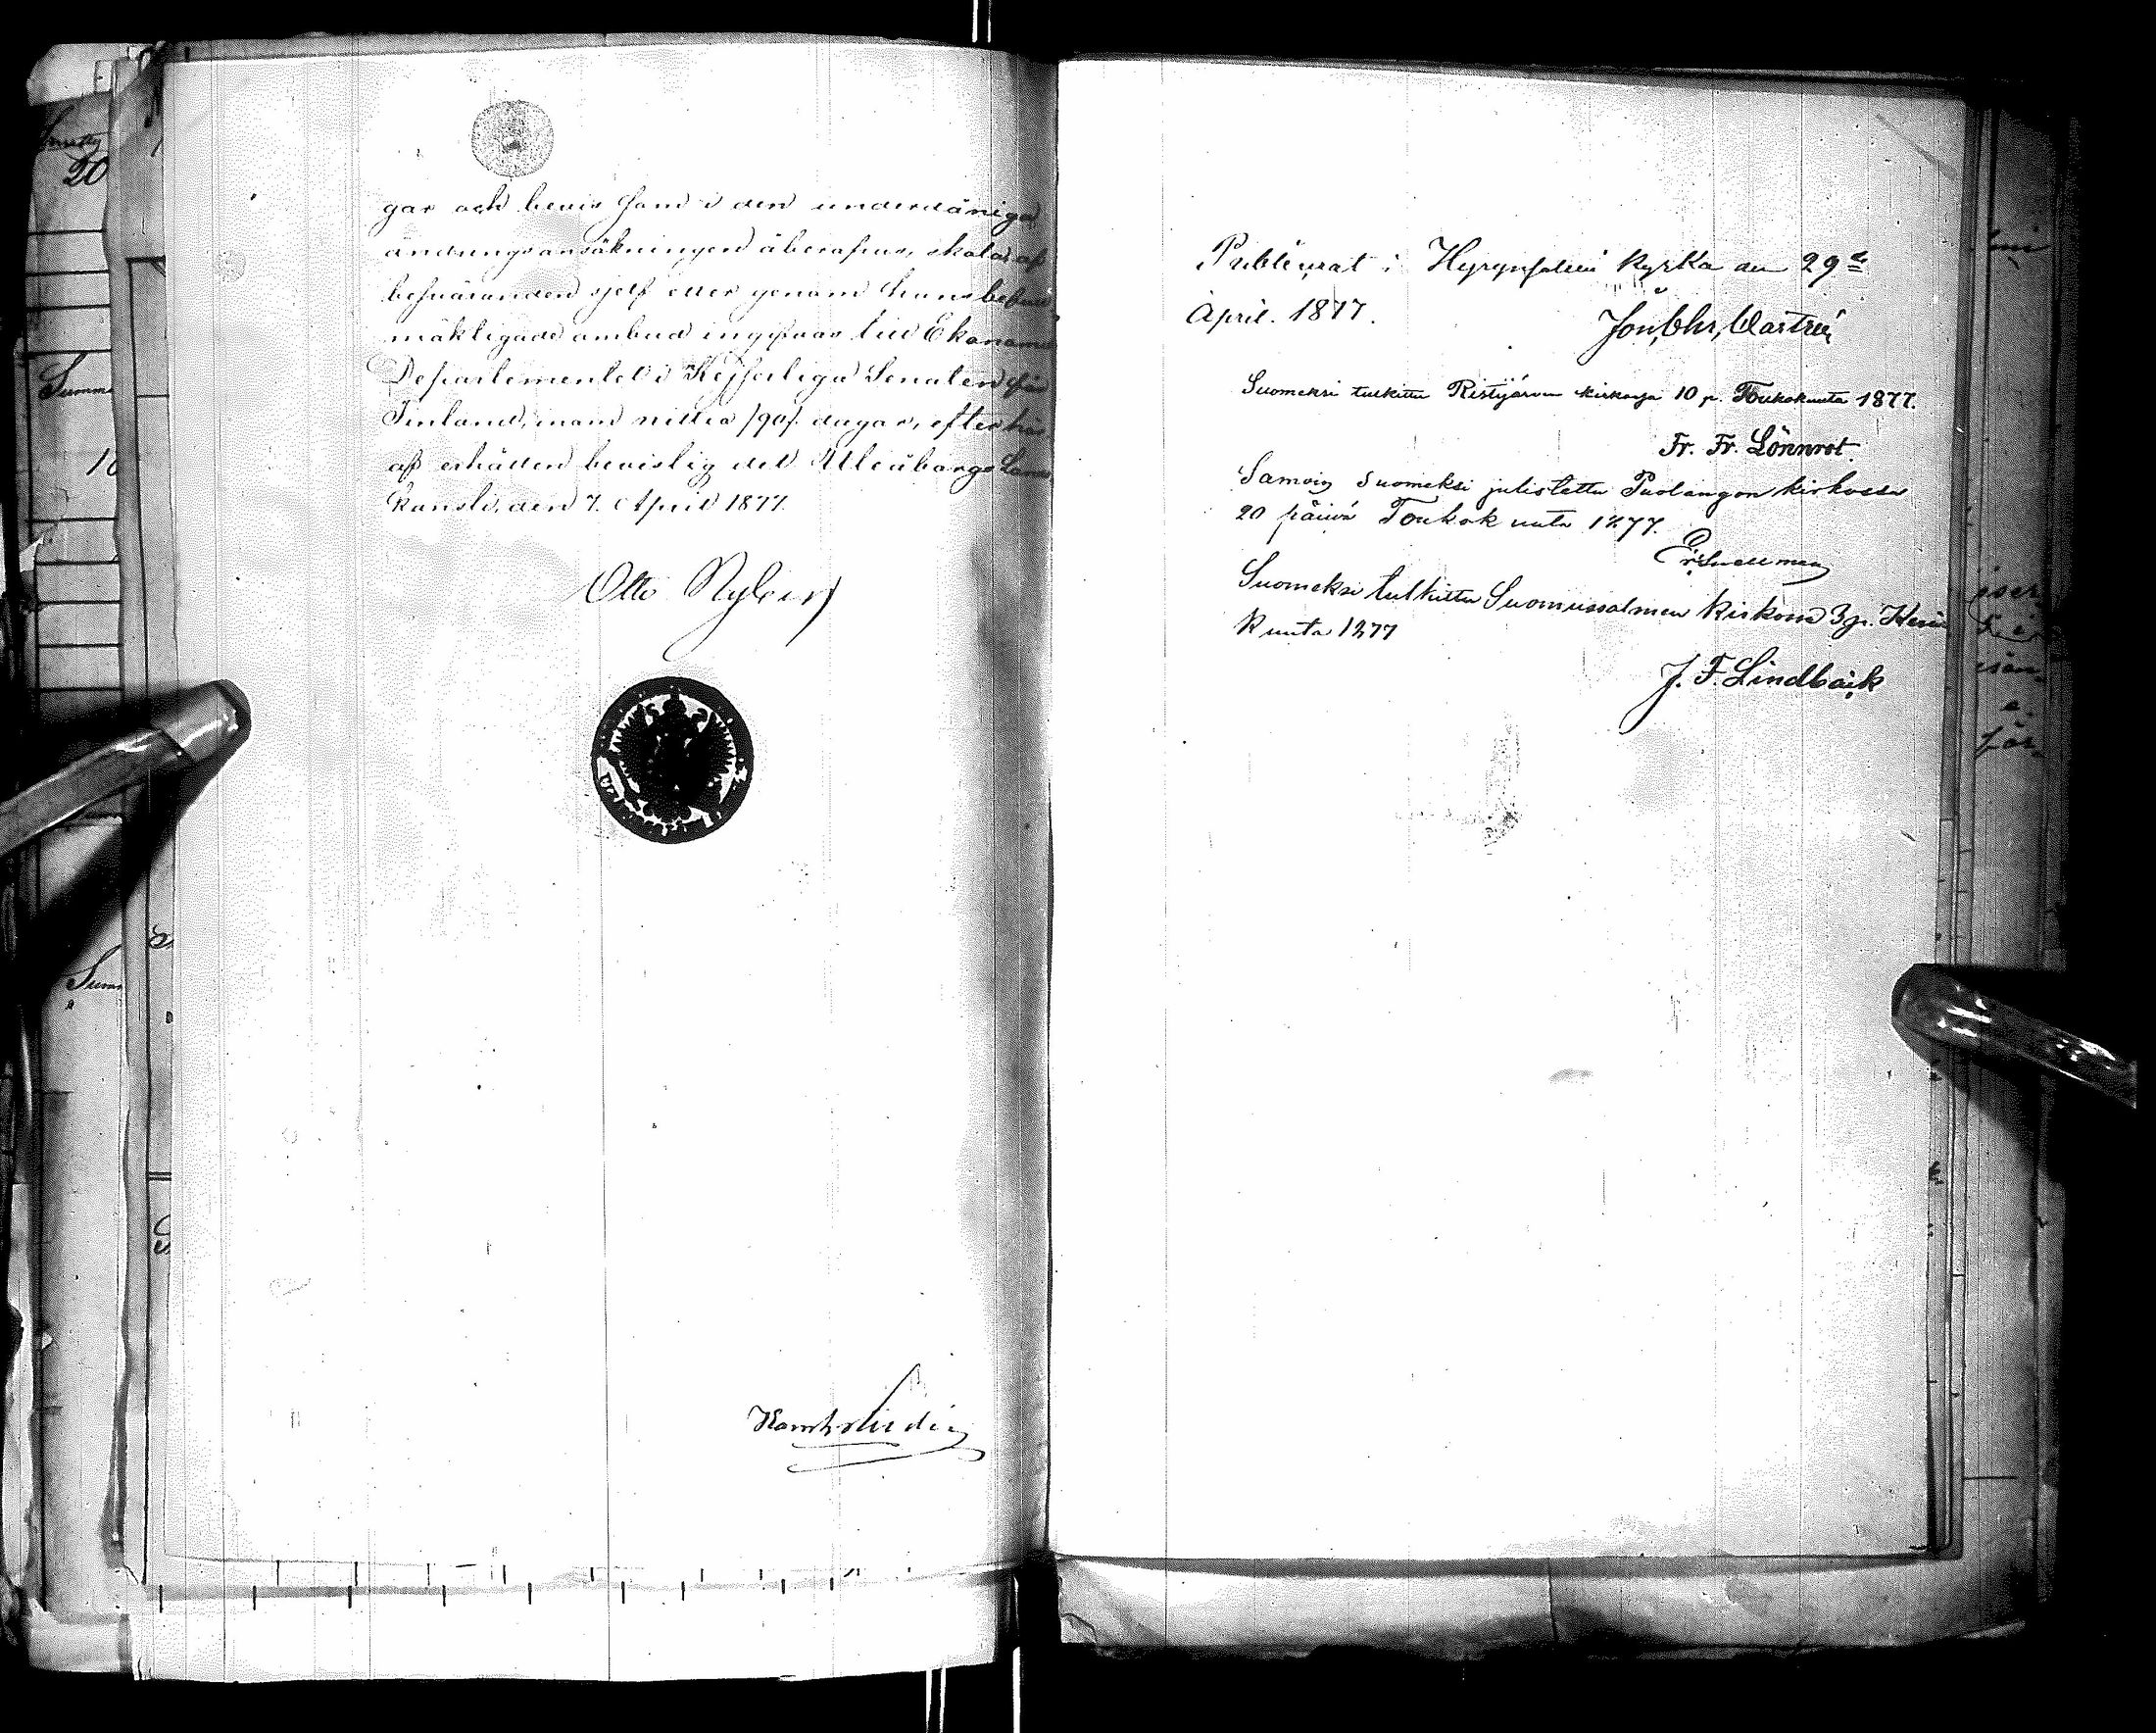 gar och bevis som i den underdåniga
ändringsansökningen åberopas, skola af
besväranden sjelf eller genom hans befull
mäktigade ombud ingifvas till Ekonomie
Departementet i Kejserliga Senaten för
Finland, inom nittio /90/ dagar, efter här
af erhållen bevislig del. Uleåborgs Lands
kansli, den 7. April 1877.
Otto Nyberg
Publicerat i Hyrynsalmi kyrka den 29de
April. 1877.
Suomeksi tulkittu Ristijärven kirkossa 10 p. Toukokuuta 1877.
Fr. Fr. Lönnrot.
Samoin Suomeksi julistettu Puolangon kirkossa
20 päivä Toukokuuta 1877.
Snellman
Suomeksi tulkittu Suomussalmen kirkossa 3 p. Kesä
kuuta 1877
J. F. Lindbäck
20
Summ
10
Summ